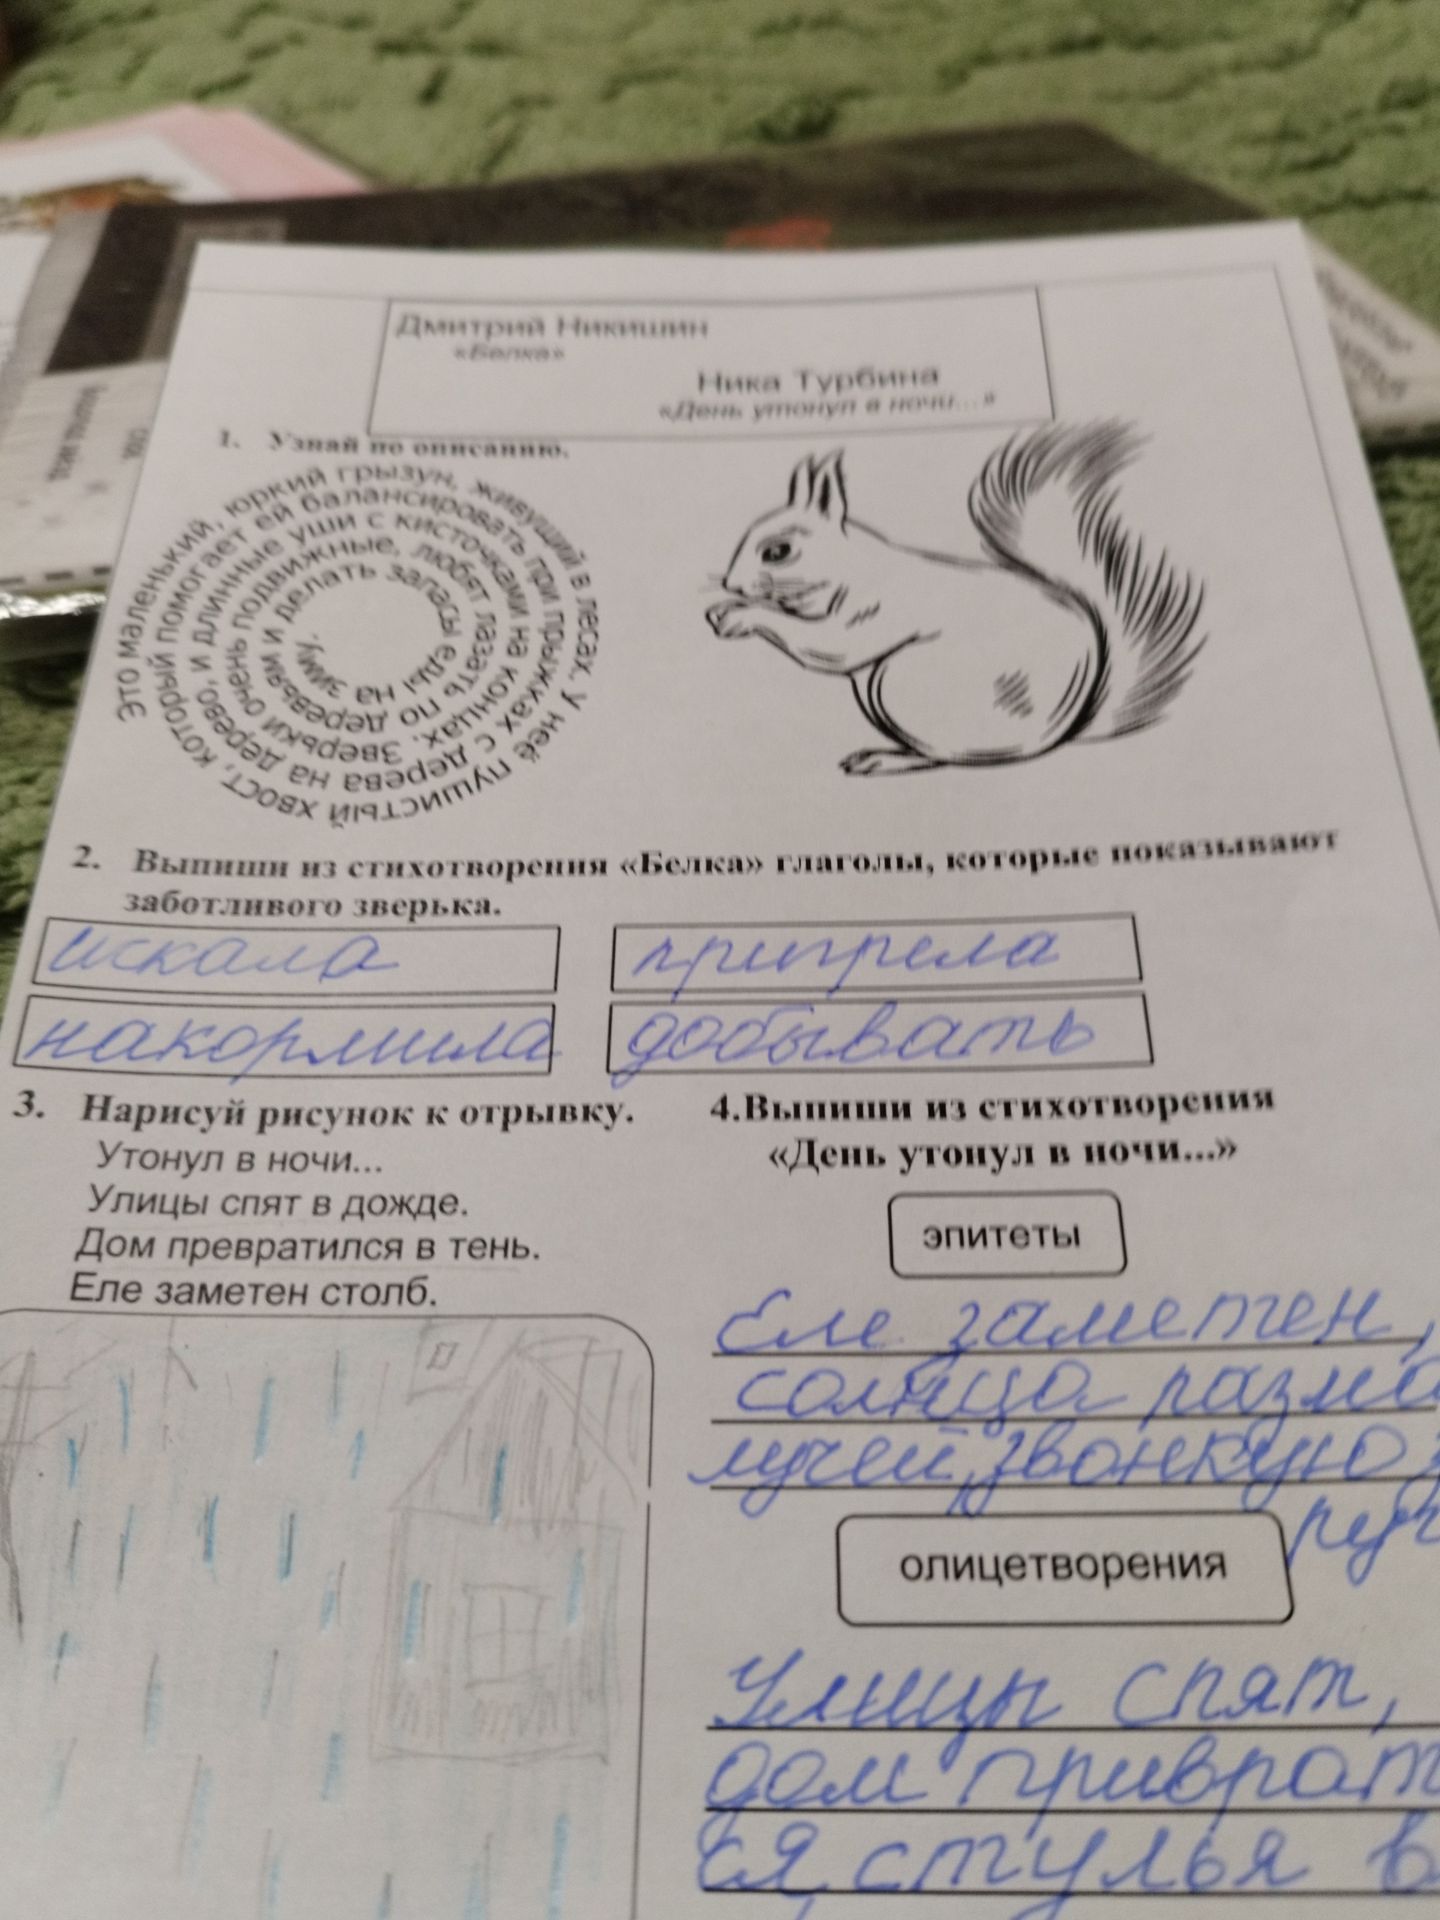 Дмитрий Никишин
«Белка»
Ника Турбина
«День утонул в ночи...»
1. Узнай по описанию.
Это маленький, юркий грызун, живущий в лесах. У неё пушистый хвост, который помогает ей балансировать при прыжках с дерева на дерево, и длинные уши с кисточками на концах. Зверьки очень подвижные, любят лазать по деревьям и делать запасы еды на зиму.
2. Выпиши из стихотворения «Белка» глаголы, которые показывают
заботливого зверька.
искала
пригрела
накормила
добывать
3. Нарисуй рисунок к отрывку.
Утонул в ночи...
Улицы спят в дожде.
Дом превратился в тень.
Еле заметен столб.
4.Выпиши из стихотворения
«День утонул в ночи...»
эпитеты
Еле заметен,
солнца
лучей, звонкую
олицетворения
Улицы спят,
дом приврат
ся, стулья в